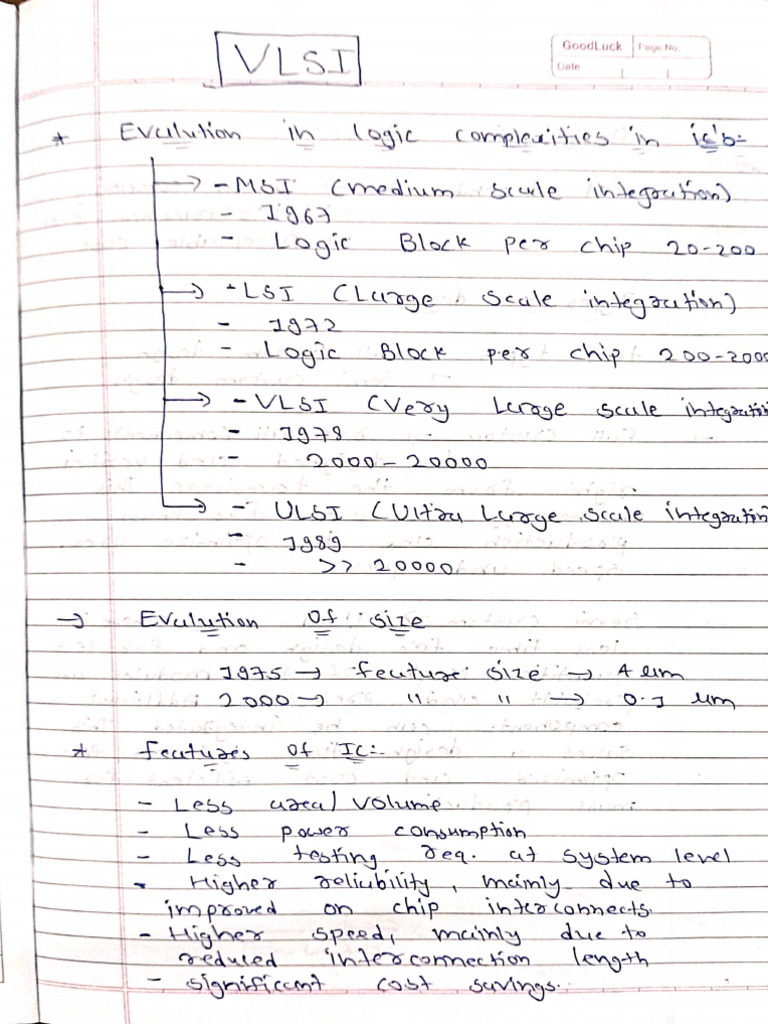 VLSI
GoodLuck Page No.
Date
* Evalution in logic complexities in ic's:-
→ - MSI (medium scale integration)
- 1967
- Logic Block per chip 20-200
→ - LSI (Large scale integration)
- 1972
- Logic Block per chip 200-2000
→ - VLSI (Very Large scale integration
- 1978
- 2000-20000
→ - ULSI (Ultra Large scale integration
- 1989
- >> 20000
→ Evalution of size
1975 → feature size → 4 um
2000 → " " → 0.1 um
* features of IC:-
- Less area/volume
- Less power consumption
- Less testing req. at system level
- Higher reliability, mainly due to
improved on chip interconnects.
- Higher speed, mainly due to
reduced interconnection length
- significant cost savings.